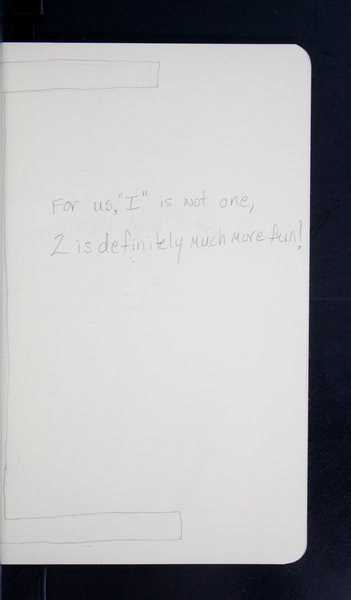 For us, "I" is not one,
2 is definitely much more fun!